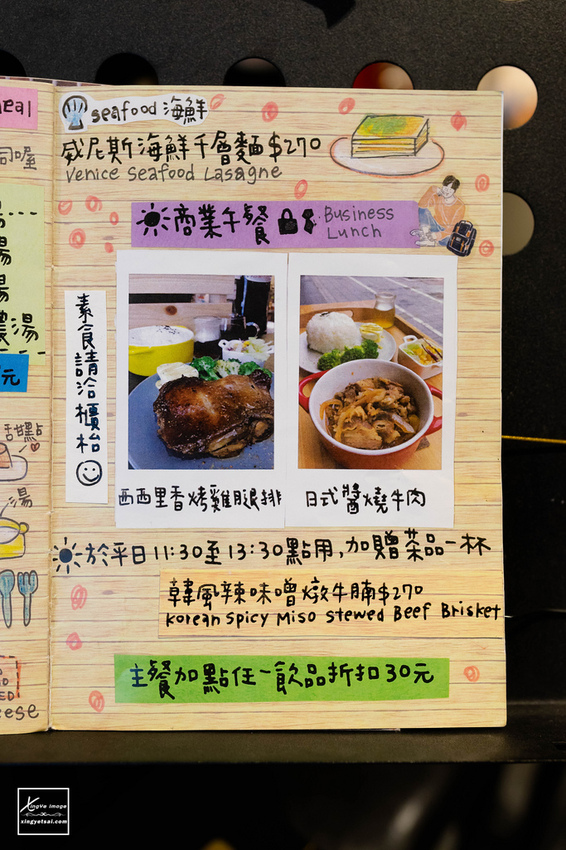 eal
司喔
湯
湯
農湯
元
甜點
湯
ED
eese
seafood 海鮮
威尼斯海鮮千層麵$270
Venice Seafood Lasagne
商業午餐 Business
Lunch
素食請洽櫃枱
西西里香烤雞腿排
日式醬燒牛肉
於平日11:30至13:30點用,加贈茶品一杯
韓風辣味噌燉牛腩$270
Korean Spicy Miso Stewed Beef Brisket
主餐加點任一飲品折扣30元
XingYe Image
xingyetsai.com